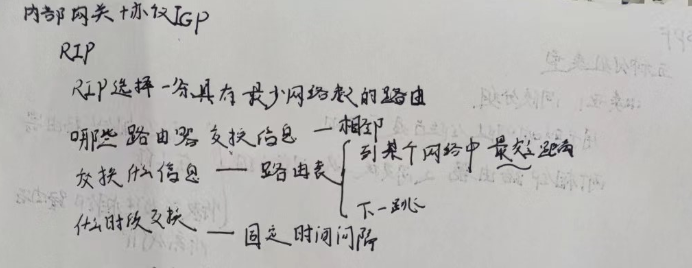 内部网关协议IGP
RIP
RIP选择一条具有最少网络数的路由
哪些路由器交换信息 — 相邻
交换什么信息 — 路由表 { 到某个网络中最短距离
下一跳
什么时候交换 — 固定时间间隔